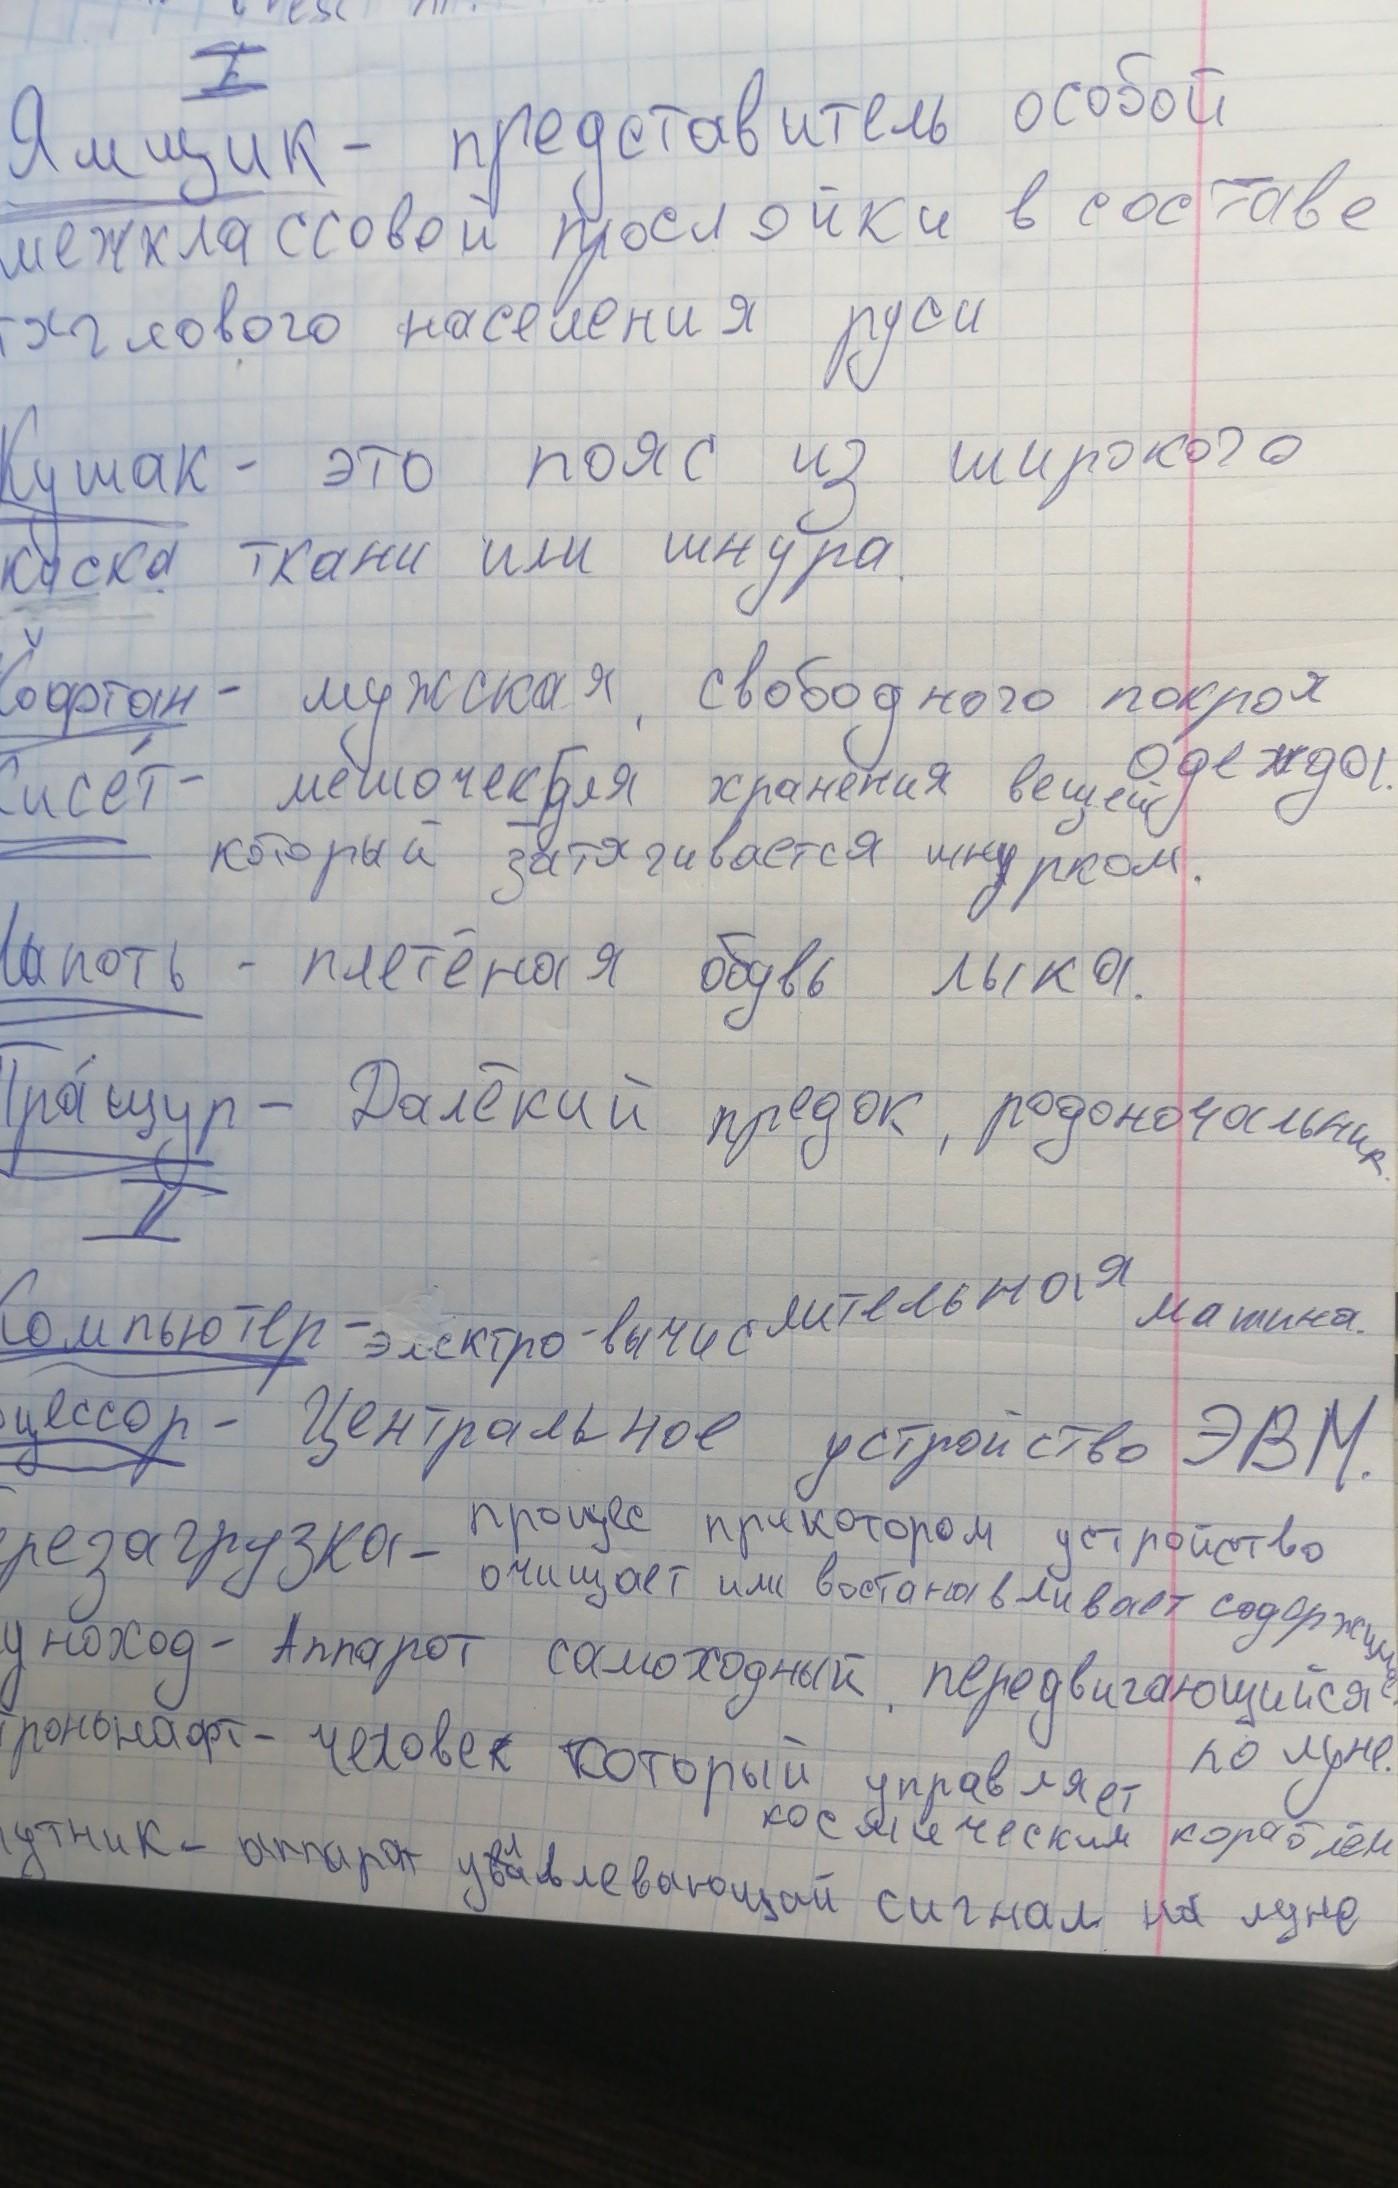 I
Ямщик - представитель особой
межклассовой прослойки в составе
тяглового населения руси
Кушак - это пояс из широкого
куска ткани или шнура.
Кофтан - мужская, свободного покроя
одежда.
Кисéт - мешочек для хранения вещей
который затягивается шнурком.
Лапоть - плетёная обувь лыка.
Прáщур - Далёкий предок, родоночальник.
II
Компьютер - электро-вычислительная машина.
оцессор - Центральное устройство ЭВМ.
ерезагрузка - процес прикотором устройство
очищает или востанавливает содержимое
уноход - Аппарот самоходный, передвигающийся
по луне.
трононафт - человек который управляет
космическим кораблём
путник - аппарат сигнал на луне